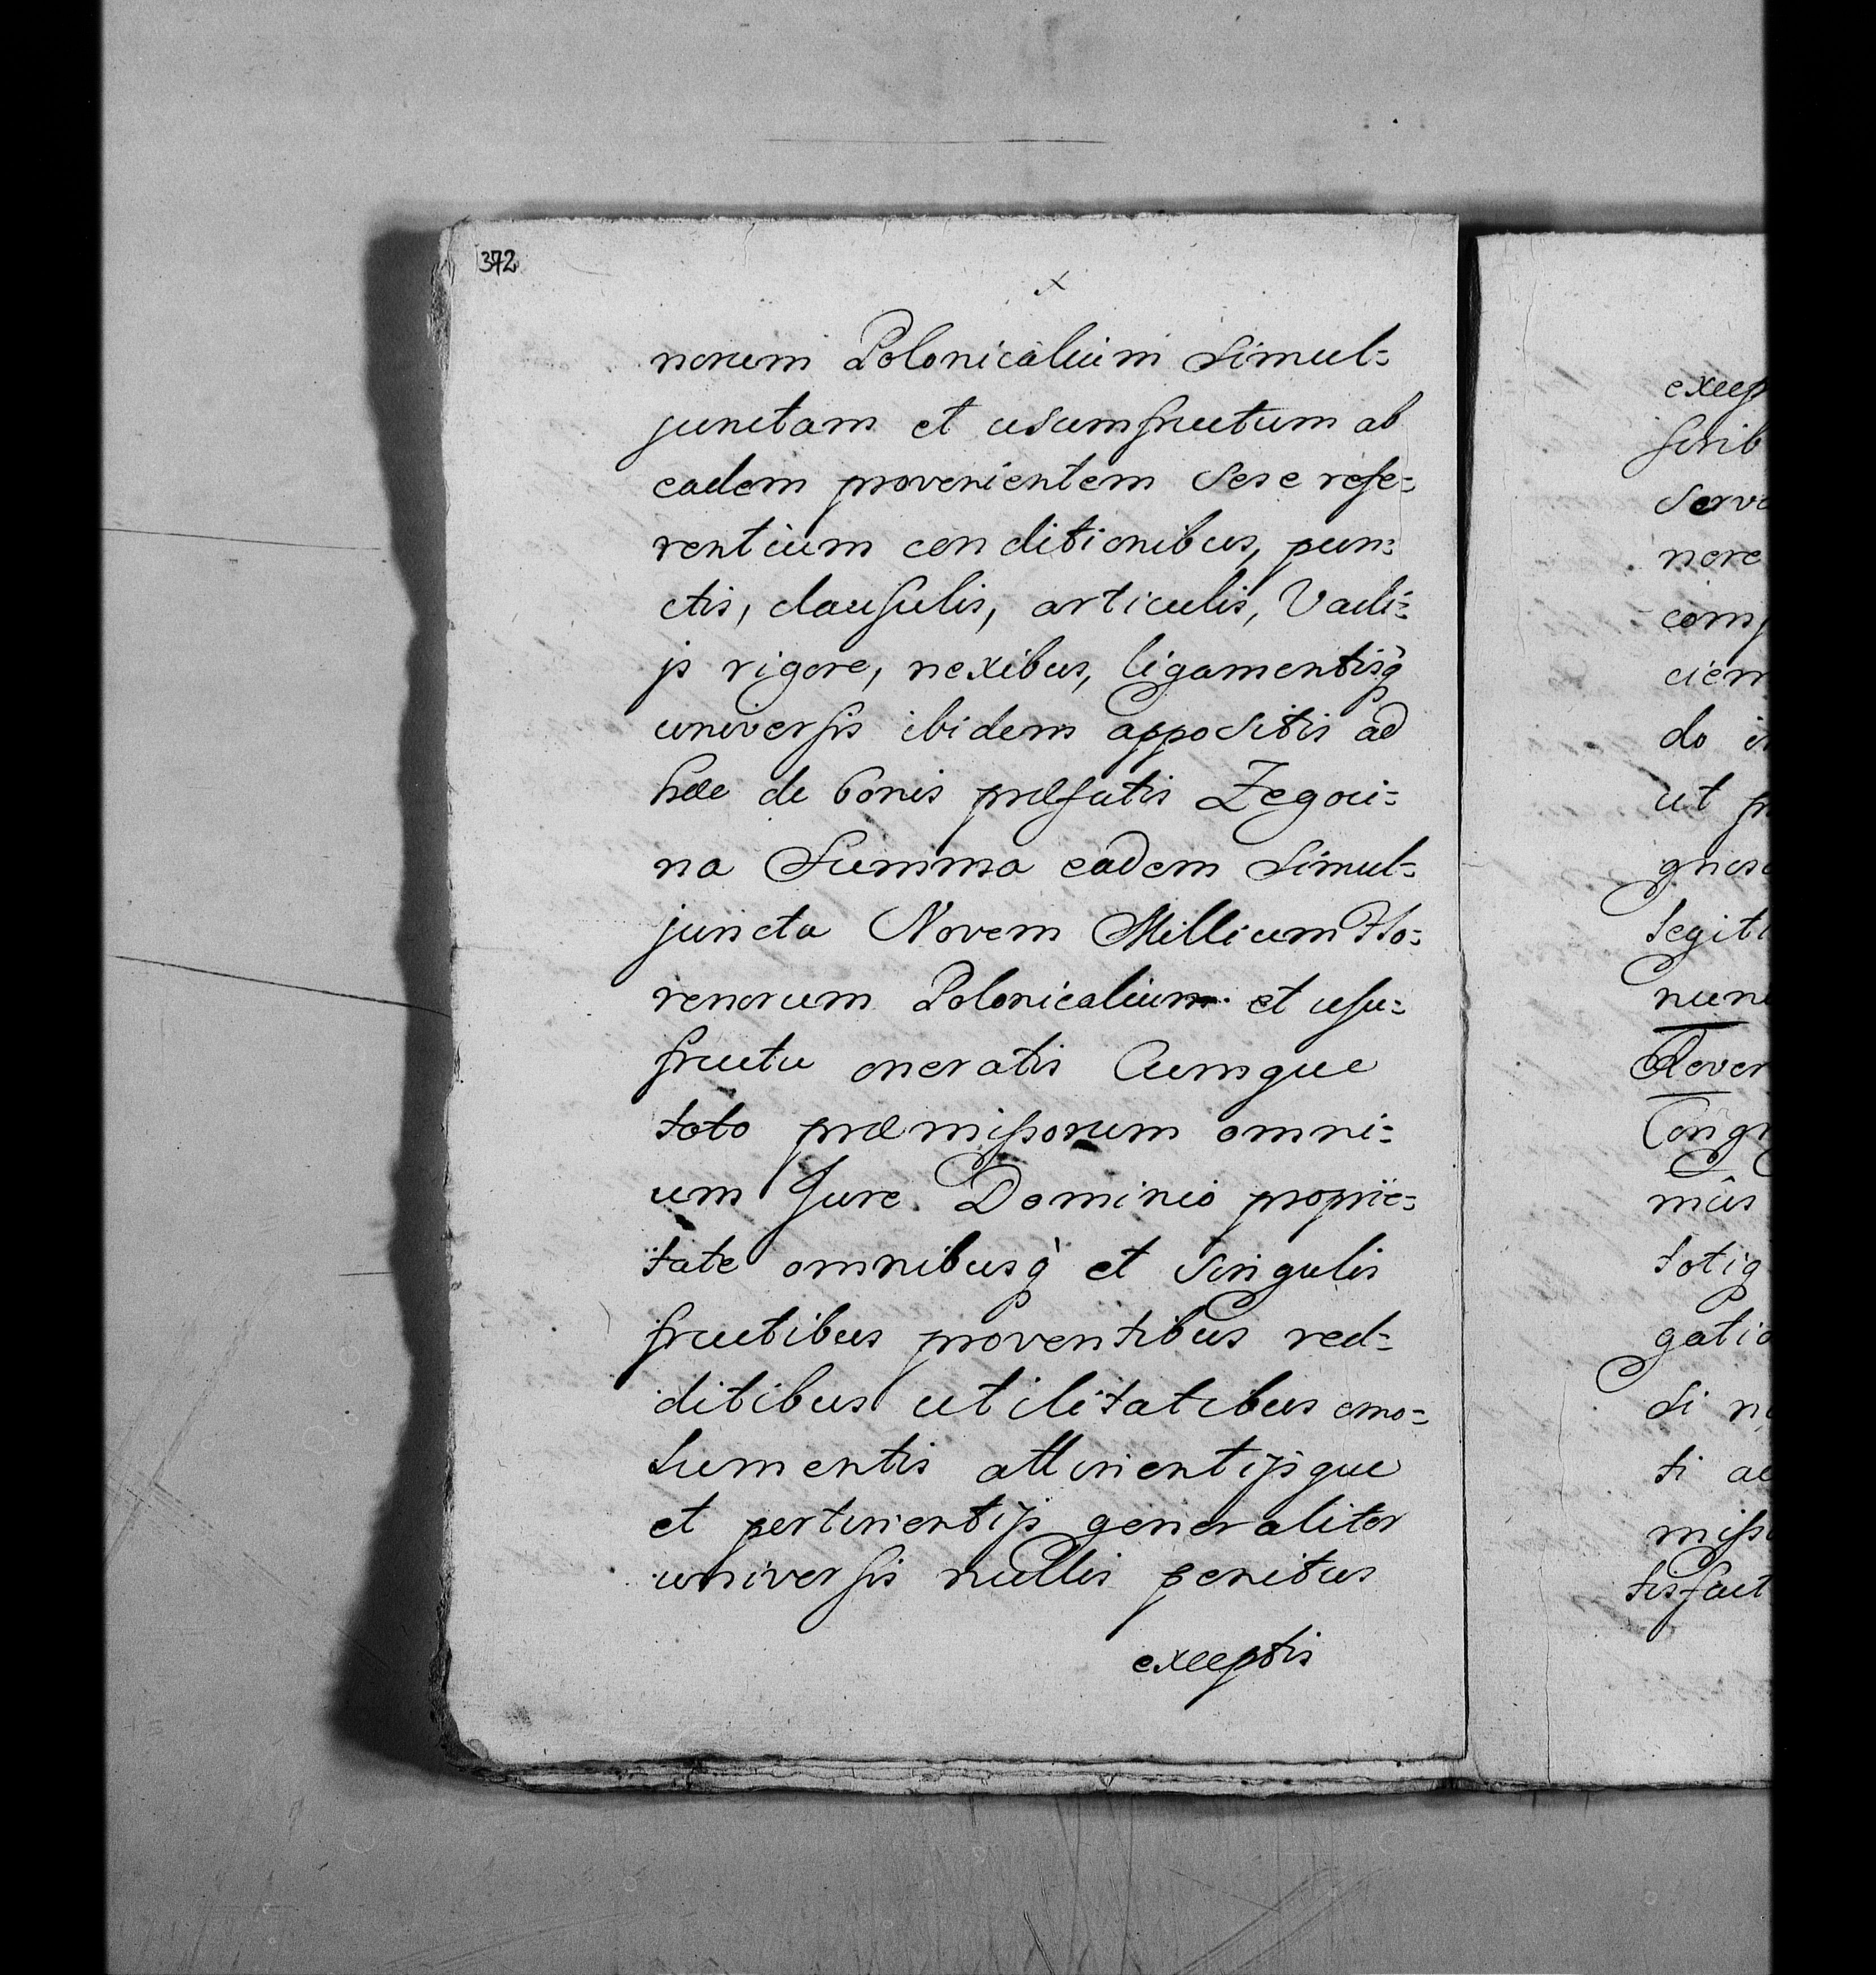 372
norum Polonicalium Simul=
junctam et usumfructum ab
eadem provenientem Sese refe=
rentium conditionibus, pun=
ctis, clausulis, articulis, Vadi=
js rigore, nexibus, ligamentisq̀
universis ibidem appositis ad
hæc de bonis præfatis Zegoci=
na Summa eadem Simul=
juncta Novem Millium Flo=
renorum Polonicalium et usu=
fructu oneratis Cumque
toto præmissorum omni=
um Jure Dominio proprie=
tate omnibusq̀ et Singulis
fructibus proventibus red=
ditibus utilitatibus emo=
lumentis attinentijsque
et pertinentijs generaliter
universis nullis penitus
exceptis